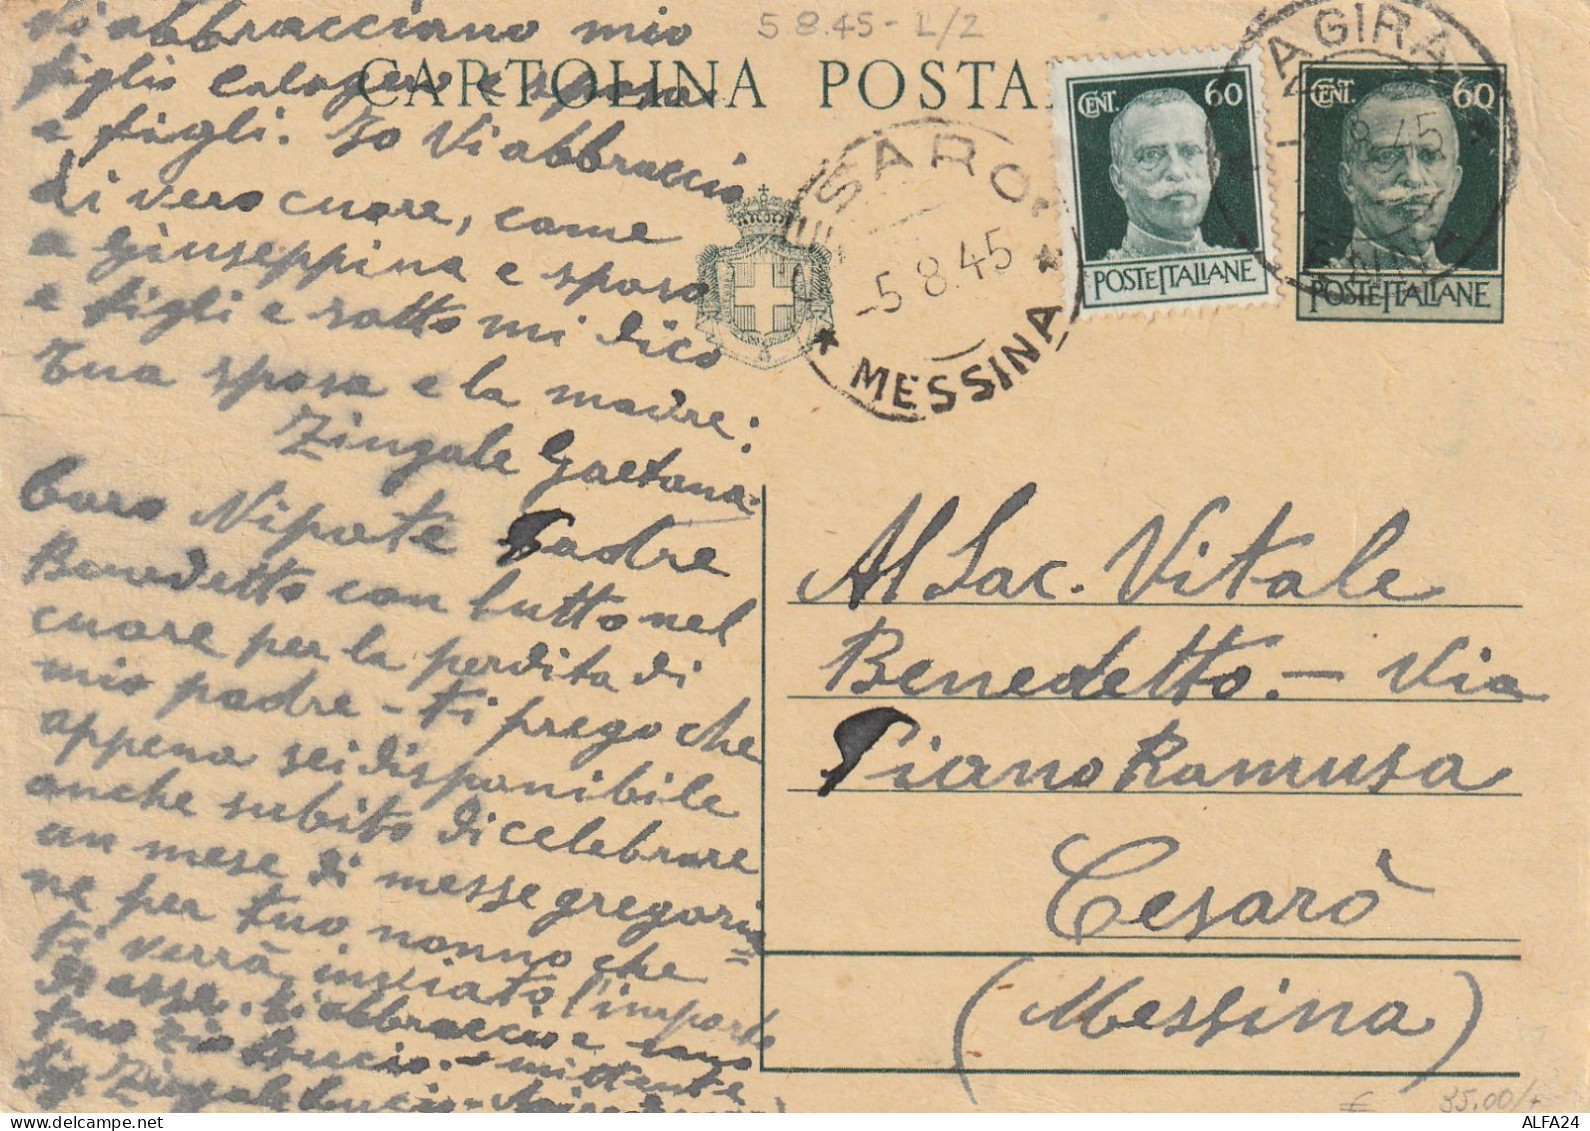 Vi abbracciano mio
figlio Calogero e sposa
e figli. Io Vi abbraccio
di vero cuore, come
a Giuseppina e sposo
e figli e sotto mi dico
tua sposa e la madre:
Zingale Gaetana
Caro Nipote Padre
Benedetto con tutto nel
cuore per la perdita di
mio padre - ti prego che
appena sei disponibile
anche subito di celebrare
un mese di messe gregoria=
ne per tuo nonno che
ti verrà inviato l'importo
di esse. ti abbraccio e sono
tuo zio Lucio. - mittente
Sig. Zingale Lucio -
5.8.45 - L/2
CARTOLINA POSTA
CENT. 60
POSTE ITALIANE
CENT. 60
POSTE ITALIANE
CESARO
-5.8.45
* MESSINA *
AGIRA
8.45
Al Sac. Vitale
Benedetto. - Via
Piano Ramusa
Cesarò
(Messina)
€ 35.00/+
ALFA24